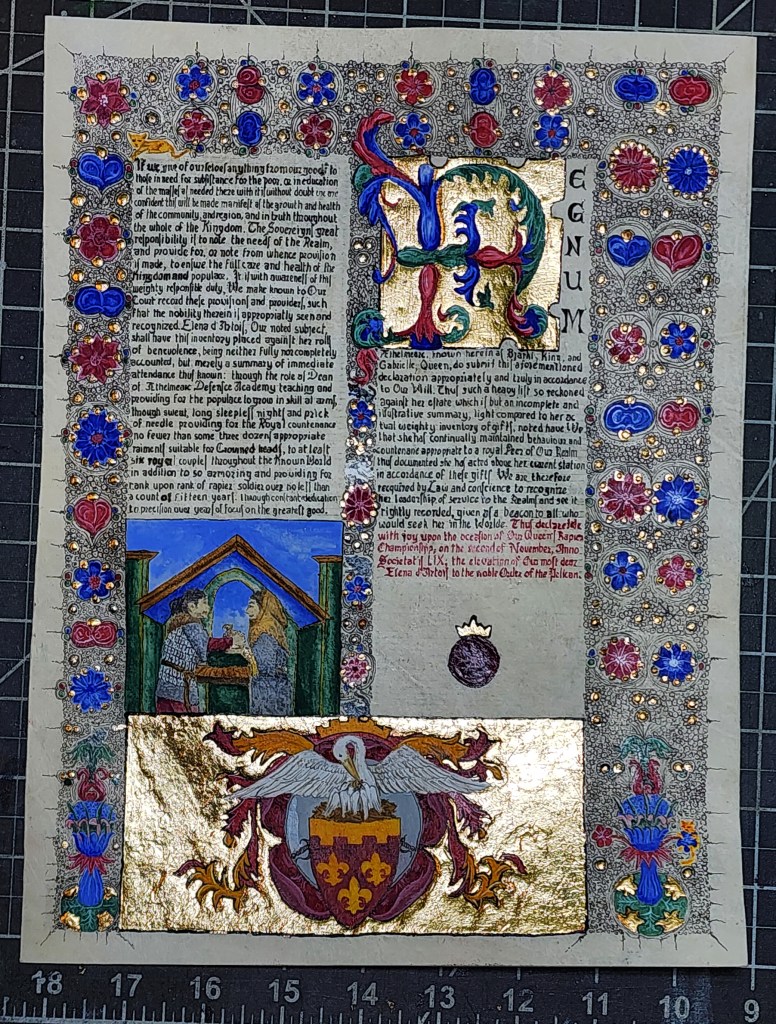 If we, one of ourselves anything from our goods to
those in need for substance for the poor, or in education
of the masses as needed there with it is without doubt
confident this will be made manifest as the growth and health
of the community, and region, and in truth throughout
the whole of the Kingdom. The Sovereigns great
responsibility is to note the needs of the Realm,
and provide for, or note from whence provision
is made, to ensure the full care and health of the
Kingdom and populace. It is with awareness of this
weighty responsible duty, We make known to Our
Court record these provisions and providers, such
that the nobility therein is appropriatly seen and
recognized. Elena d'Artois, Our noted subject,
shall have this inventory placed against her rolls
of benevolence, being neither fully nor completely
accounted, but merely a summary of immediate
attendance thus known: through the role as Dean
of Æthelmearc Defense Academy teaching and
providing for the populace to grow in skill at arms,
though sweat, long sleepless nights and prick
of needle providing for the Royal countenance
no fewer than some three dozen appropriate
raiments suitable for Crowned heads, to at least
six royal couples throughout the Known World
in addition to so armoring and providing for
rank upon rank of rapier soldiers over no less than
a count of fifteen years. Through constant dedication
to precision over years of focus on the greatest good.
R
EGNUM
Æthelmearc, known herein as Bjarki, King, and
Gabrielle, Queen, do submit this aforementioned
declaration appropriately and truly in accordance
to Our Will. Thus such a heavy list so reckoned
against her estate which is but an incomplete and
illustrative summary, light compared to her ac
tual weighty inventory of gifts, noted have We
that she has continually maintained behaviour, and
countenance appropriate to a royal Peer of Our Realm
thus documented she has acted above her current station
in accordance of these gifts. We are therefore
required by Law and conscience to recognize
her leadership of service to the Realm, and see it
rightly recorded, given as a beacon to all who
would seek her in the Worlde. Thus declare We
with joy upon the occasion of Our Queen's Rapier
Championship, on the second of November, Anno
Societatis LIX; the elevation of Our most dear
Elena d'Artois to the noble Order of the Pelican.
18 17 16 15 14 13 12 11 10 9